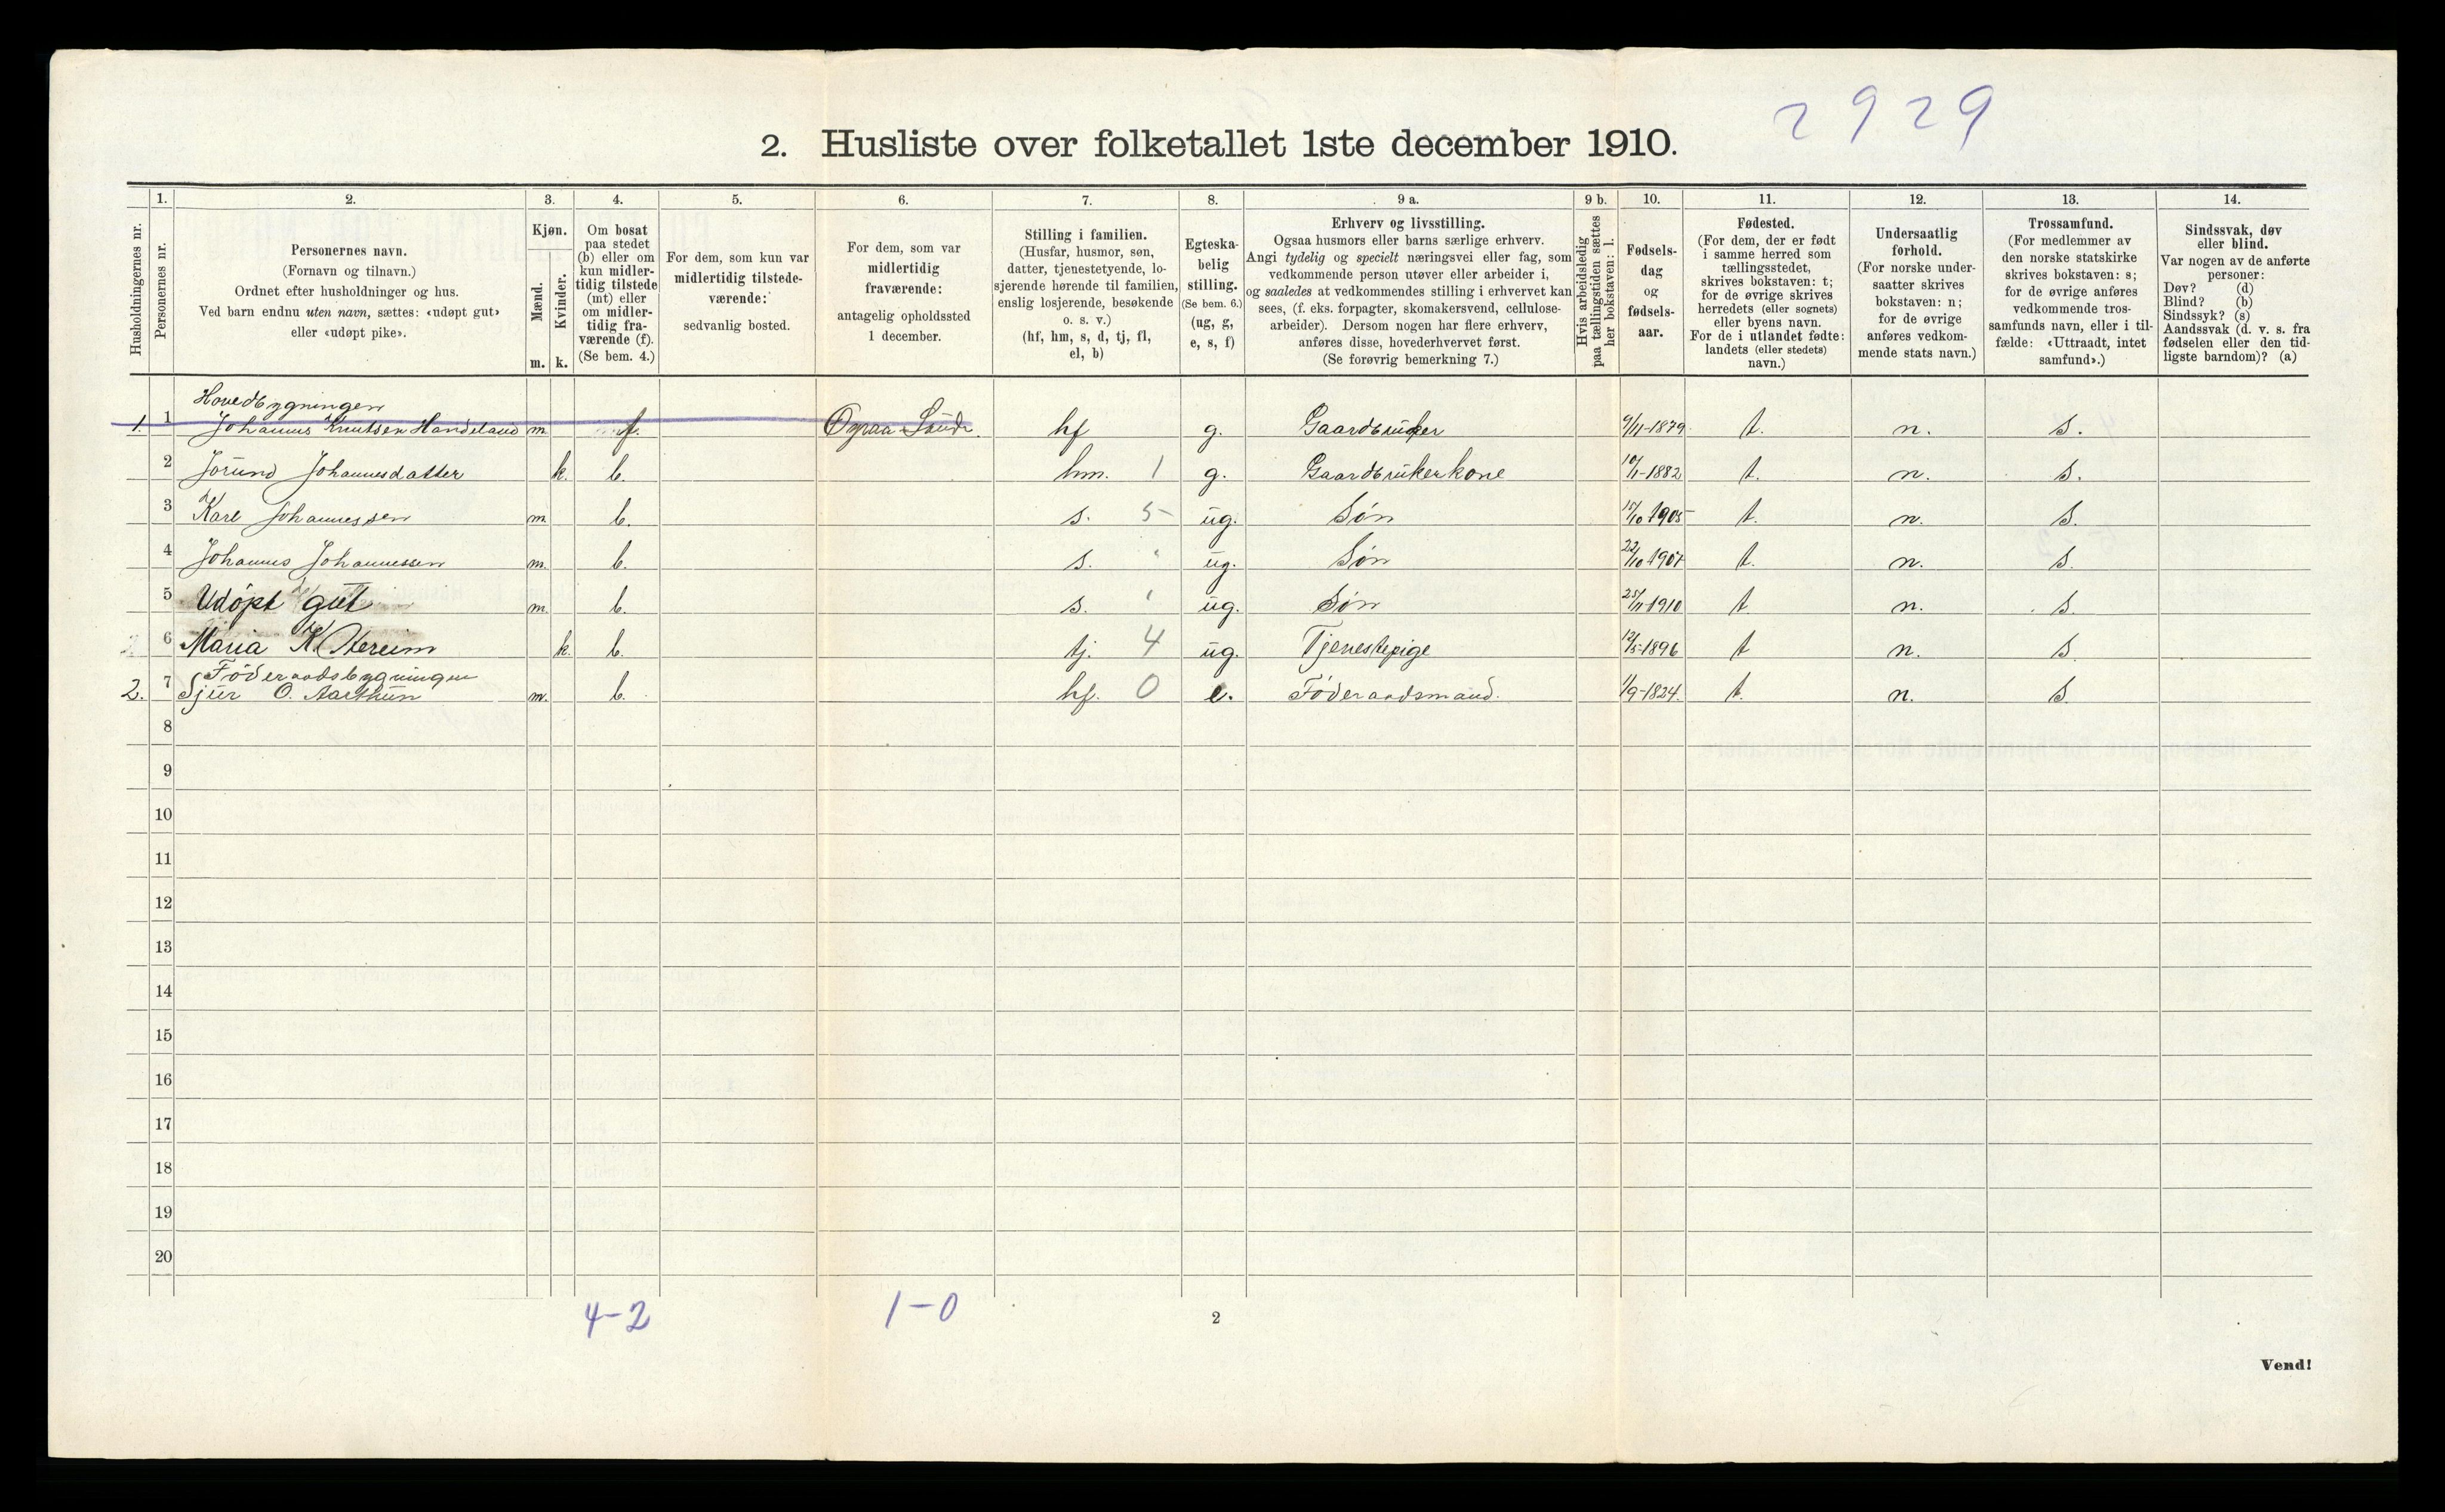 2 9 2 9
2. Husliste over folketallet 1ste december 1910.
1. 2. 3. 4. 5. 6. 7. 8. 9 a. 9 b. 10. 11. 12. 13. 14.
Husholdningernes nr.
Personernes nr.
Personernes navn.
(Fornavn og tilnavn.)
Ordnet efter husholdninger og hus.
Ved barn endnu uten navn, sættes: «udøpt gut»
eller «udøpt pike».
Kjøn.
Mænd.
Kvinder.
m. k.
Om bosat
paa stedet
(b) eller om
kun midler-
tidig tilstede
(mt) eller
om midler-
tidig fra-
værende (f).
(Se bem. 4.)
For dem, som kun var
midlertidig tilstede-
værende:
sedvanlig bosted.
For dem, som var
midlertidig
fraværende:
antagelig opholdssted
1 december.
Stilling i familien.
(Husfar, husmor, søn,
datter, tjenestetyende, lo-
sjerende hørende til familien,
enslig losjerende, besøkende
o. s. v.)
(hf, hm, s, d, tj, fl,
el, b)
Egteska-
belig
stilling.
(Se bem. 6.)
(ug, g,
e, s, f)
Erhverv og livsstilling.
Ogsaa husmors eller barns særlige erhverv.
Angi tydelig og specielt næringsvei eller fag, som
vedkommende person utøver eller arbeider i,
og saaledes at vedkommendes stilling i erhvervet kan
sees, (f. eks. forpagter, skomakersvend, cellulose-
arbeider). Dersom nogen har flere erhverv,
anføres disse, hovederhvervet først.
(Se forøvrig bemerkning 7.)
Hvis arbeidsledig
paa tællingstiden sættes
her bokstaven: l.
Fødsels-
dag
og
fødsels-
aar.
Fødested.
(For dem, der er født
i samme herred som
tællingsstedet,
skrives bokstaven: t;
for de øvrige skrives
herredets (eller sognets)
eller byens navn.
For de i utlandet fødte:
landets (eller stedets)
navn.)
Undersaatlig
forhold.
(For norske under-
saatter skrives
bokstaven: n;
for de øvrige
anføres vedkom-
mende stats navn.)
Trossamfund.
(For medlemmer av
den norske statskirke
skrives bokstaven: s;
for de øvrige anføres
vedkommende tros-
samfunds navn, eller i til-
fælde: «Uttraadt, intet
samfund».)
Sindssvak, døv
eller blind.
Var nogen av de anførte
personer:
Døv? (d)
Blind? (b)
Sindssyk? (s)
Aandssvak (d. v. s. fra
fødselen eller den tid-
ligste barndom)? (a)
Hovedbygningen
1. 1 Johannes Knutsen Handeland m. f. hf g. Gaardbruker 9/11-1879 t. n. s.
2 Jorund Johannesdatter k. b. hm. 1 g. Gaardbrukerkone 10/1-1882 t. n. s.
3 Karl Johannessen m. b. s. 5 ug. Søn 15/10 1905 t. n. s.
4 Johannes Johannessen m. b. s. " ug. Søn 22/10 1907 t. n. s.
5 Udöpt gut m. b. s. " ug. Søn 25/11 1910 t n. s.
6 Maria K. b. tj. 4 ug. Tjenestepige 12/5-1896 t n. s
Föderaadsbygningen
2. 7 Sjur O. Aarthun m. b. hf. 0 e. Föderaadsmand. 1/9-1824. t. n. s.
8
9
10
11
12
13
14
15
16
17
18
19
20
4-2 1-0
2
Vend!